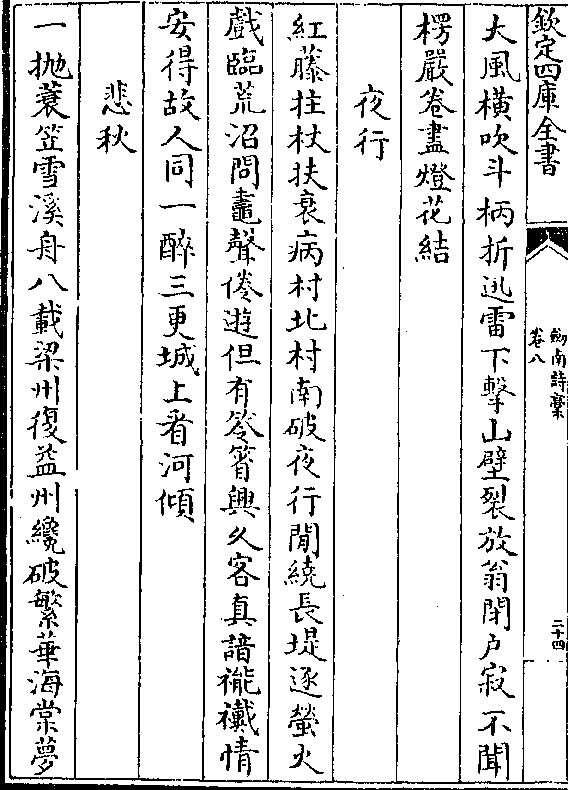 欽定四庫全書
劒南詩稾
卷八
二十四
大風橫吹斗柄折迅雷下擊山壁裂放翁閉户寂不聞
楞嚴卷盡燈花結
夜行
紅藤拄杖扶衰病村北村南破夜行閒繞長堤逐螢火
戲臨荒沼問鼃聲倦遊但有笭箵興久客真諳褦襶情
安得故人同一醉三更城上看河傾
悲秋
一抛蓑笠雪溪舟八載梁州復益州纔破繁華海棠夢